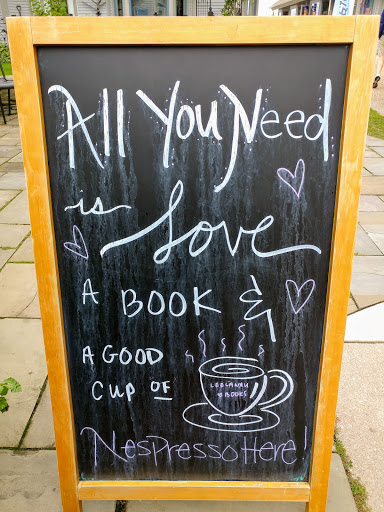 All You Need
is Love
A BOOK &
A GOOD
CUP OF
LEELANAU
BOOKS
Nespresso Here!